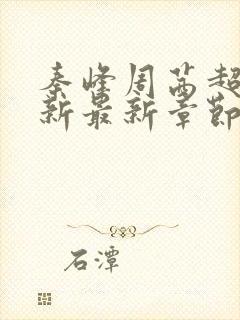 秦峰周茜超
新最新章节
石潭